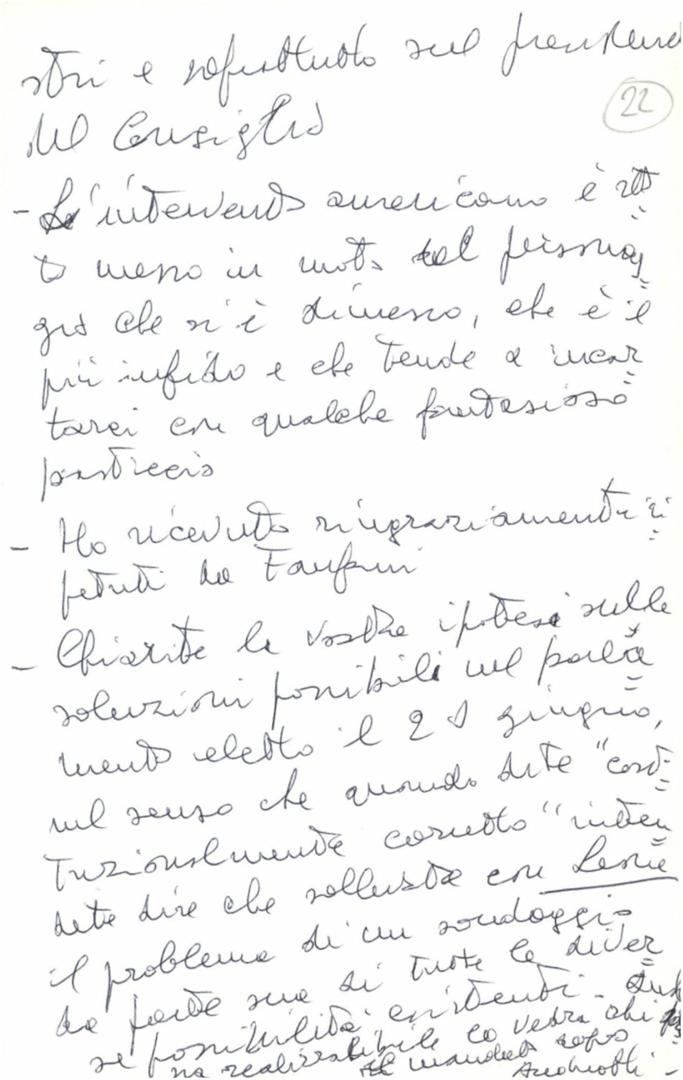 stri e soprattutto sul presidente
del Consiglio
22
- L'intervento americano è sta
to messo in moto dal personag
gio che si è dimesso, che è il
più infido e che tende a incar
tarci con qualche fantasioso
pasticcio
- Ho ricevuto ringraziamenti ri
petuti da Fanfani
- Chiarite le vostre ipotesi sulle
soluzioni possibili nel parla
mento eletto il 20 giugno,
nel senso che quando dite "costi
tuzionalmente corretto" inten
dete dire che sollevate con Leone
il problema di un sondaggio
da parte sua di tutte le diver
se possibilità esistenti -
na realizzabile lo vedrà chi
il mandato dopo
Andreotti -